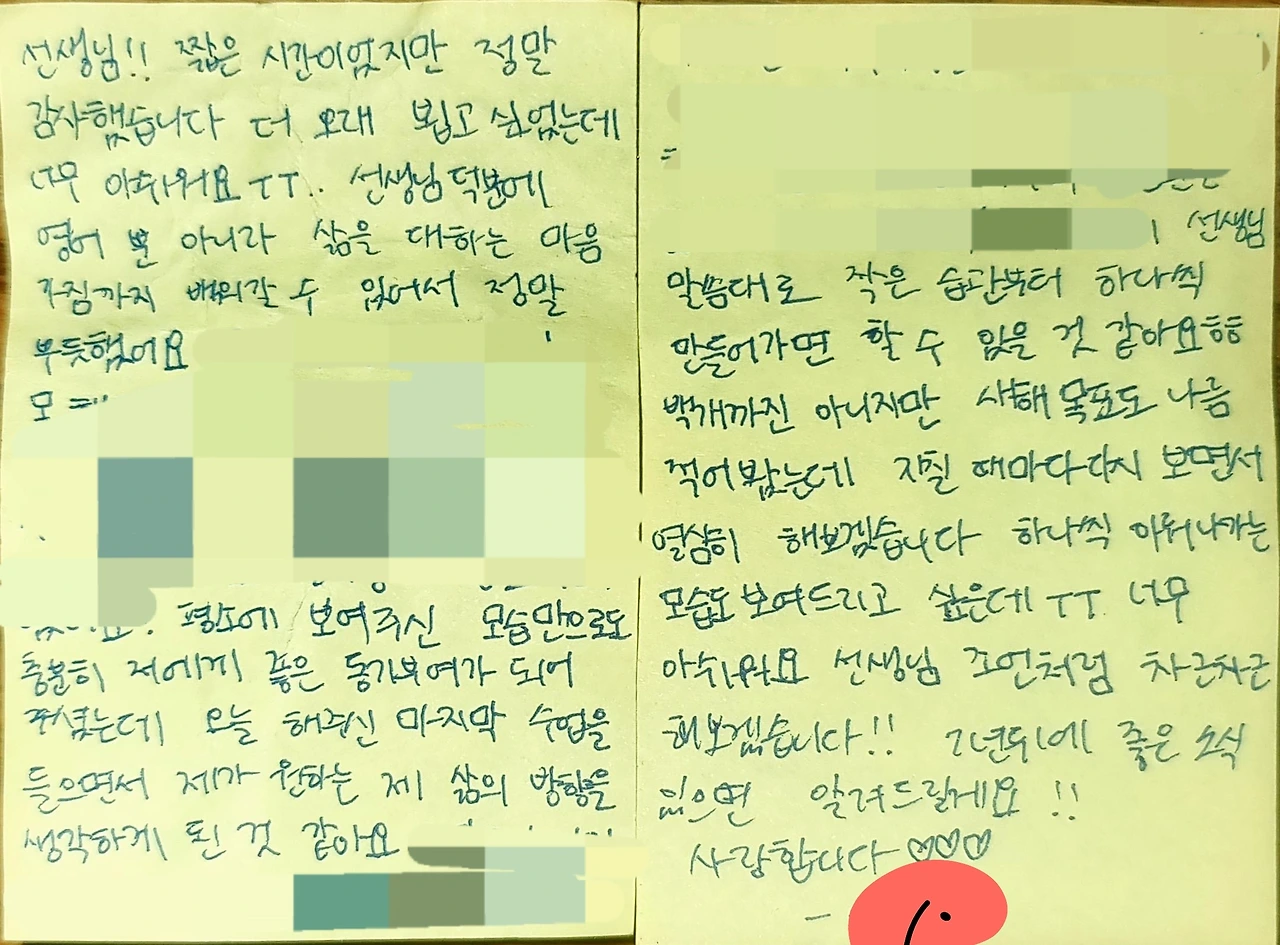 선생님!! 짧은 시간이었지만 정말
감사했습니다 더 오래 뵙고 싶었는데
너무 아쉬워요 ㅜㅜ.. 선생님 덕분에
영어 뿐 아니라 삶을 대하는 마음
가짐까지 배워갈 수 있어서 정말
뿌듯했어요
모
평소에 보여주신 모습만으로도
충분히 저에게 좋은 동기부여가 되어
주셨는데 오늘 해주신 마지막 수업을
들으면서 제가 원하는 제 삶의 방향을
생각하게 된 것 같아요
선생님
말씀대로 작은 습관부터 하나씩
만들어가면 할 수 있을 것 같아요ㅎㅎ
백개까진 아니지만 새해 목표도 나름
적어봤는데 지칠 때마다 다시 보면서
열심히 해보겠습니다 하나씩 이뤄나가는
모습도 보여드리고 싶은데 ㅜㅜ 너무
아쉬워요 선생님 조언처럼 차근차근
해보겠습니다!! 1년뒤에 좋은 소식
있으면 알려드릴게요!!
사랑합니다 ♡♡♡